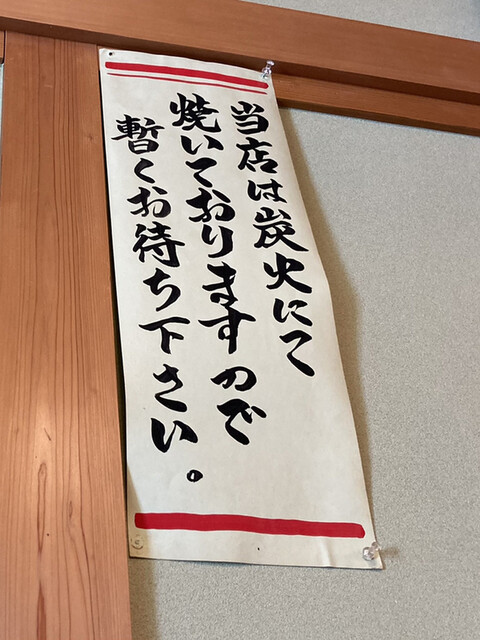 当店は炭火にて
焼いておりますので
暫くお待ち下さい。